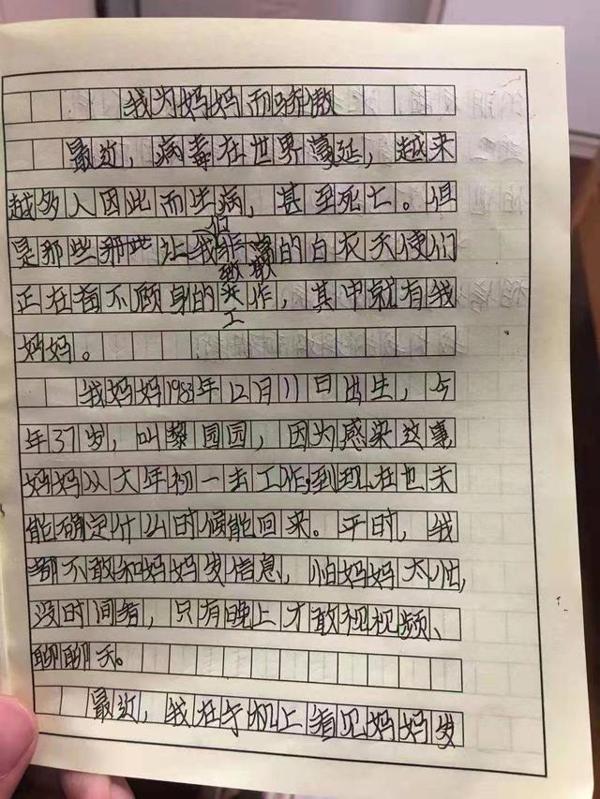 我为妈妈而骄傲
最近，病毒在世界蔓延，越来
越多人因此而生病，甚至死亡。但
是那些让我们致敬的白衣天使们
正在奋不顾身的工作，其中就有我
妈妈。
我妈妈1983年12月11日出生，今
年37岁，叫黎园园，因为感染这事
妈妈从大年初一去工作到现在也未
能确定什么时候能回来。平时，我
都不敢和妈妈发信息，怕妈妈太忙，
没时间看，只有晚上才敢视视频、
聊聊天。
最近，我在手机上看见妈妈发